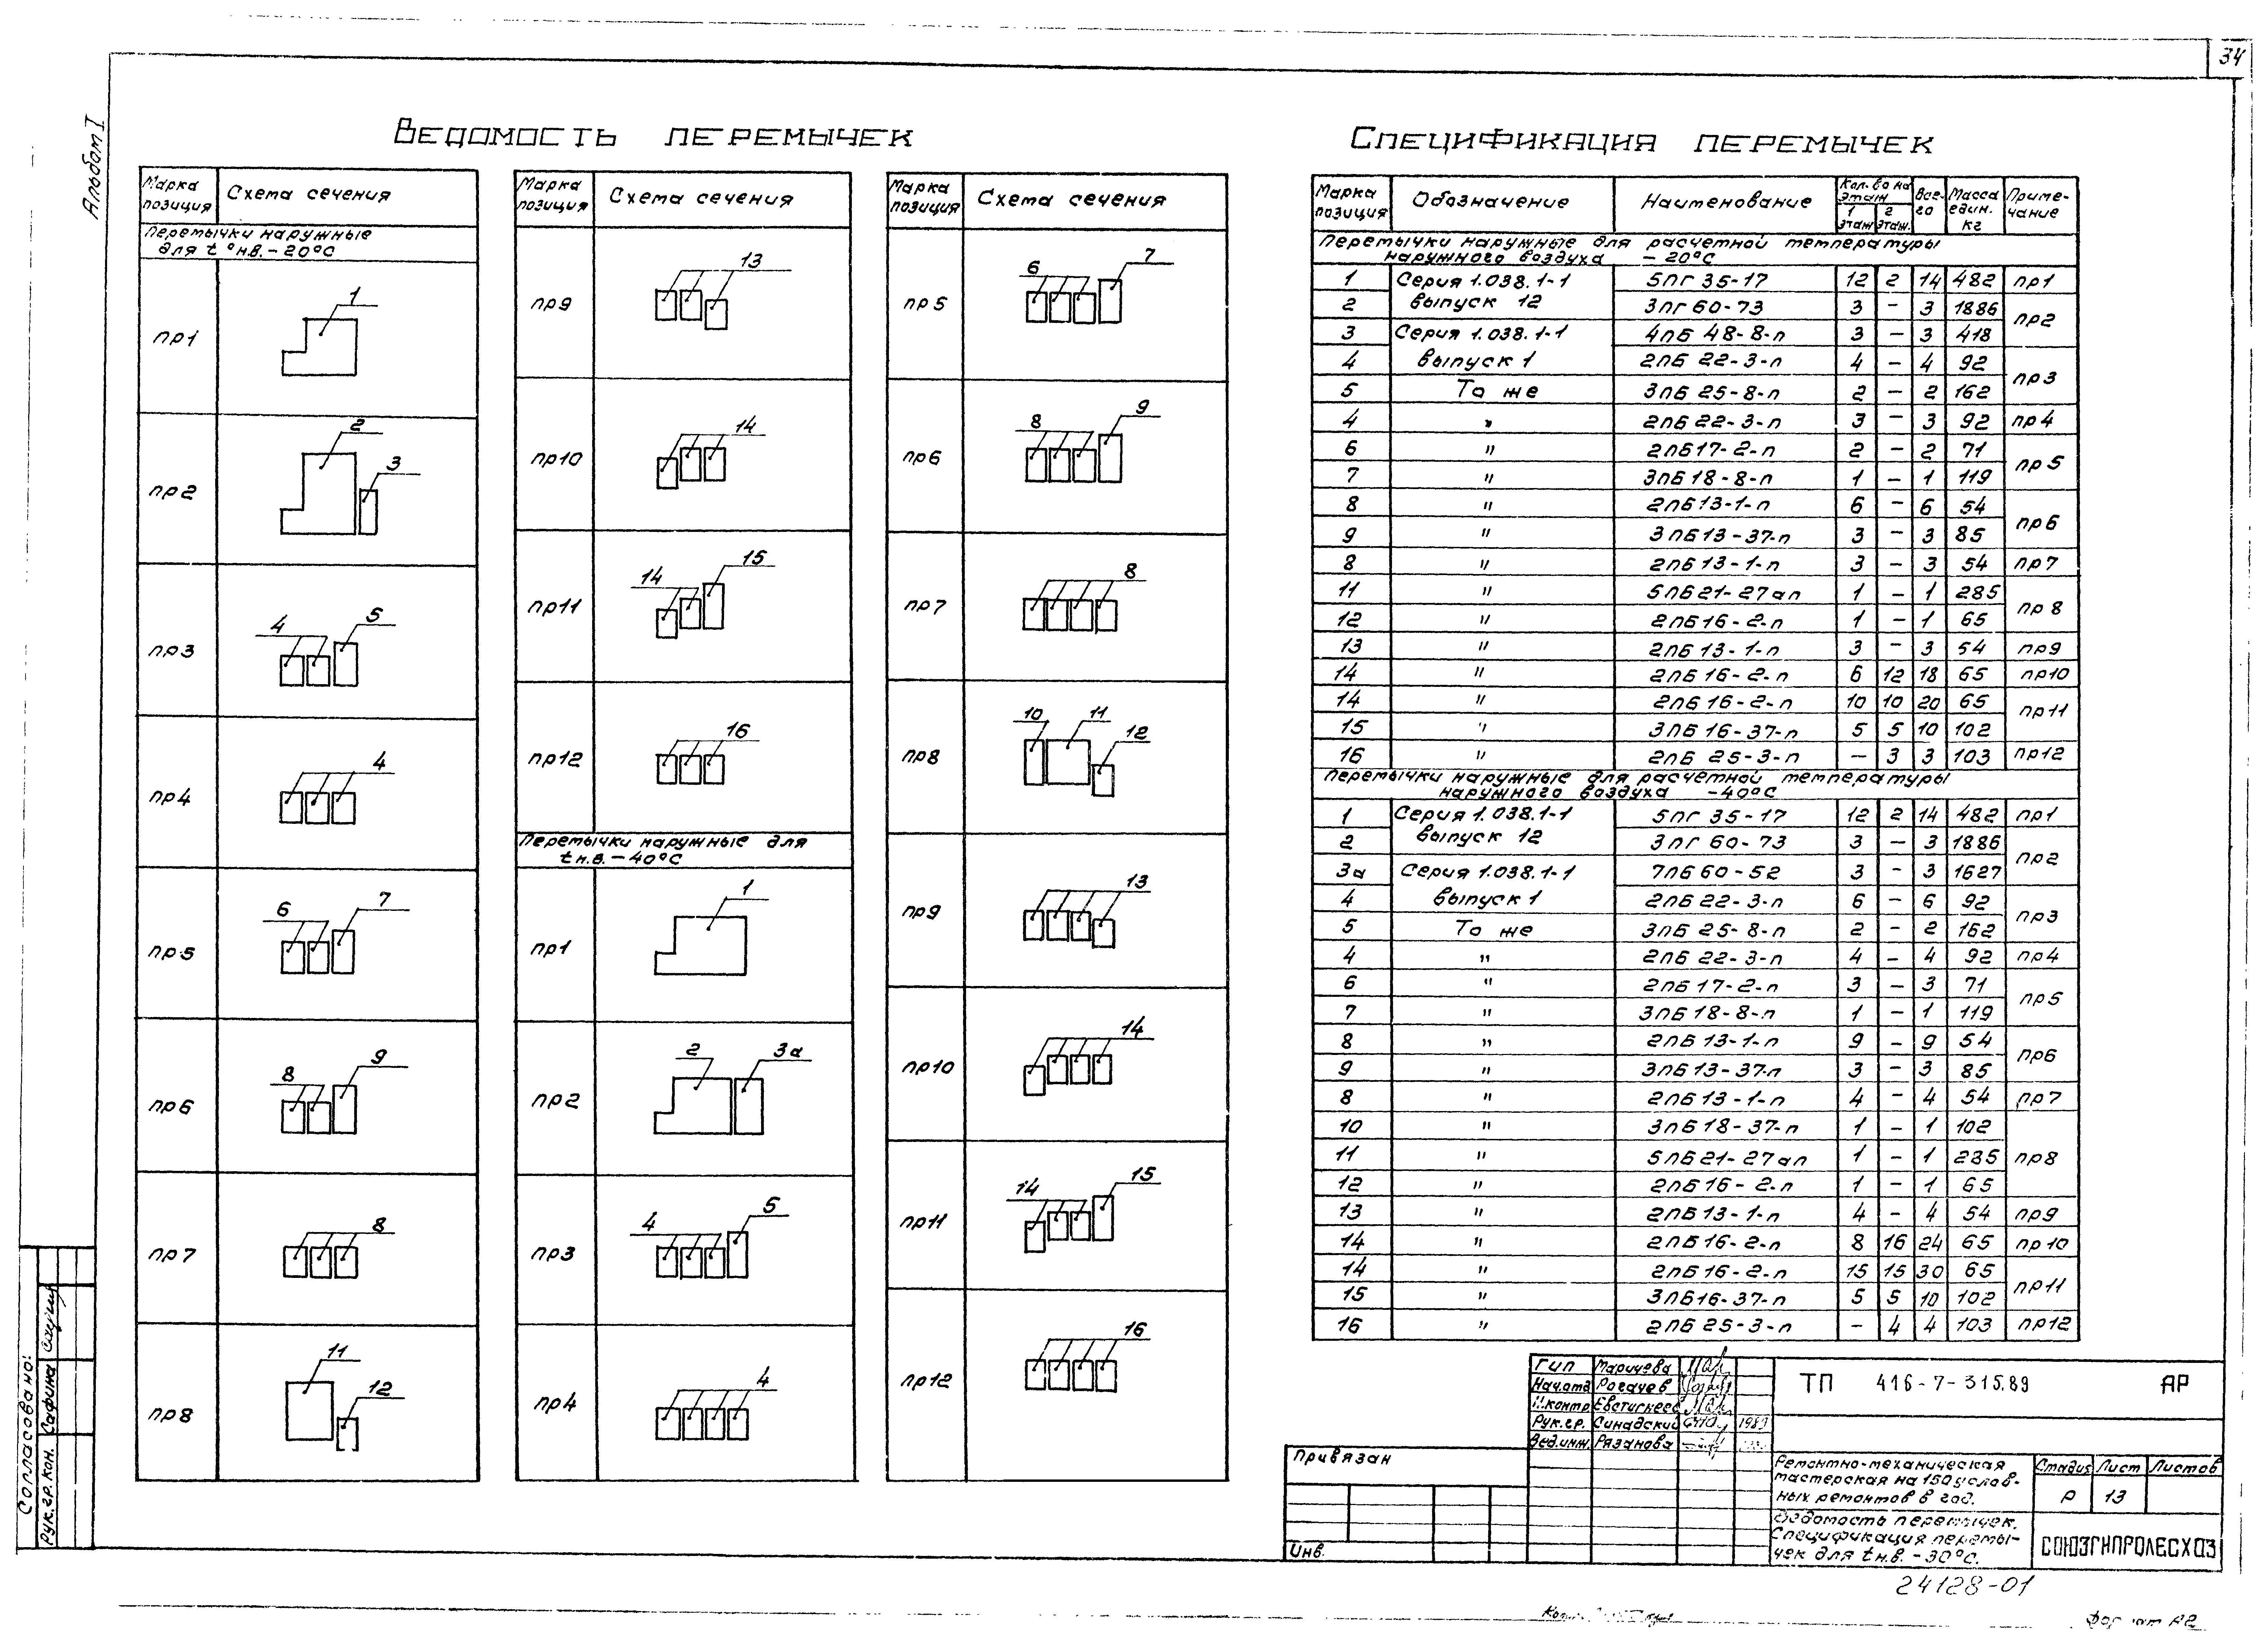 34
Альбом I
Ведомость перемычек
Марка позиция
Схема сечения
Перемычки наружные
для t°н.в. -20°С
пр1
1
пр2
2
3
пр3
4
5
пр4
4
пр5
6
7
пр6
8
9
пр7
8
пр8
11
12
Марка позиция
Схема сечения
пр9
13
пр10
14
пр11
14
15
пр12
16
Перемычки наружные для
tн.в. -40°С
пр1
1
пр2
2
3а
пр3
4
5
пр4
4
Марка позиция
Схема сечения
пр5
6
7
пр6
8
9
пр7
8
пр8
10
11
12
пр9
13
пр10
14
пр11
14
15
пр12
16
Спецификация перемычек
Марка позиция Обозначение Наименование Кол-во на этаж 1 этаж 2 этаж. Все-го Масса един. кг Приме-чание
Перемычки наружные для расчетной температуры
наружного воздуха -20°С
1 Серия 1.038.1-1 5пг 35-17 12 2 14 482 пр1
2 выпуск 12 3пг 60-73 3 - 3 1886 пр2
3 Серия 1.038.1-1 4пБ 48-8-п 3 - 3 418
4 выпуск 1 2пБ 22-3-п 4 - 4 92 пр3
5 То же 3пБ 25-8-п 2 - 2 162
4 " 2пБ 22-3-п 3 - 3 92 пр4
6 " 2пБ17-2-п 2 - 2 71 пр5
7 " 3пБ 18-8-п 1 - 1 119
8 " 2пБ13-1-п 6 - 6 54 пр6
9 " 3пБ13-37-п 3 - 3 85
8 " 2пБ13-1-п 3 - 3 54 пр7
11 " 5пБ21-27ап 1 - 1 285 пр8
12 " 2пБ16-2-п 1 - 1 65
13 " 2пБ13-1-п 3 - 3 54 пр9
14 " 2пБ16-2-п 6 12 18 65 пр10
14 " 2пБ16-2-п 10 10 20 65 пр11
15 " 3пБ16-37-п 5 5 10 102
16 " 2пБ 25-3-п - 3 3 103 пр12
Перемычки наружные для расчетной температуры
наружного воздуха -40°С
1 Серия 1.038.1-1 5пг 35-17 12 2 14 482 пр1
2 выпуск 12 3пг 60-73 3 - 3 1886 пр2
3а Серия 1.038.1-1 7пБ60-52 3 - 3 1627
4 выпуск 1 2пБ 22-3-п 6 - 6 92 пр3
5 То же 3пБ 25-8-п 2 - 2 162
4 " 2пБ 22-3-п 4 - 4 92 пр4
6 " 2пБ17-2-п 3 - 3 71 пр5
7 " 3пБ18-8-п 1 - 1 119
8 " 2пБ13-1-п 9 - 9 54 пр6
9 " 3пБ13-37-п 3 - 3 85
8 " 2пБ13-1-п 4 - 4 54 пр7
10 " 3пБ18-37-п 1 - 1 102
11 " 5пБ21-27ап 1 - 1 285 пр8
12 " 2пБ16-2-п 1 - 1 65
13 " 2пБ13-1-п 4 - 4 54 пр9
14 " 2пБ16-2-п 8 16 24 65 пр10
14 " 2пБ16-2-п 15 15 30 65 пр11
15 " 3пБ16-37-п 5 5 10 102
16 " 2пБ25-3-п - 4 4 103 пр12
Гип Маричева
Нач.отд Рогачев
Н.контр Евстигнеев
Рук.гр. Синадский 1989
Вед.инж. Рязанова
ТП 416-7-315.89 АР
Привязан
Инв.
Ремонтно-механическая
мастерская на 150 услов-
ных ремонтов в год.
Стадия Лист Листов
Р 13
Ведомость перемычек.
Спецификация перемы-
чек для tн.в. -30°С.
СОЮЗГИПРОЛЕСХОЗ
24128-01
Формат А2
Согласовано:
Рук.гр.кон. Сафина